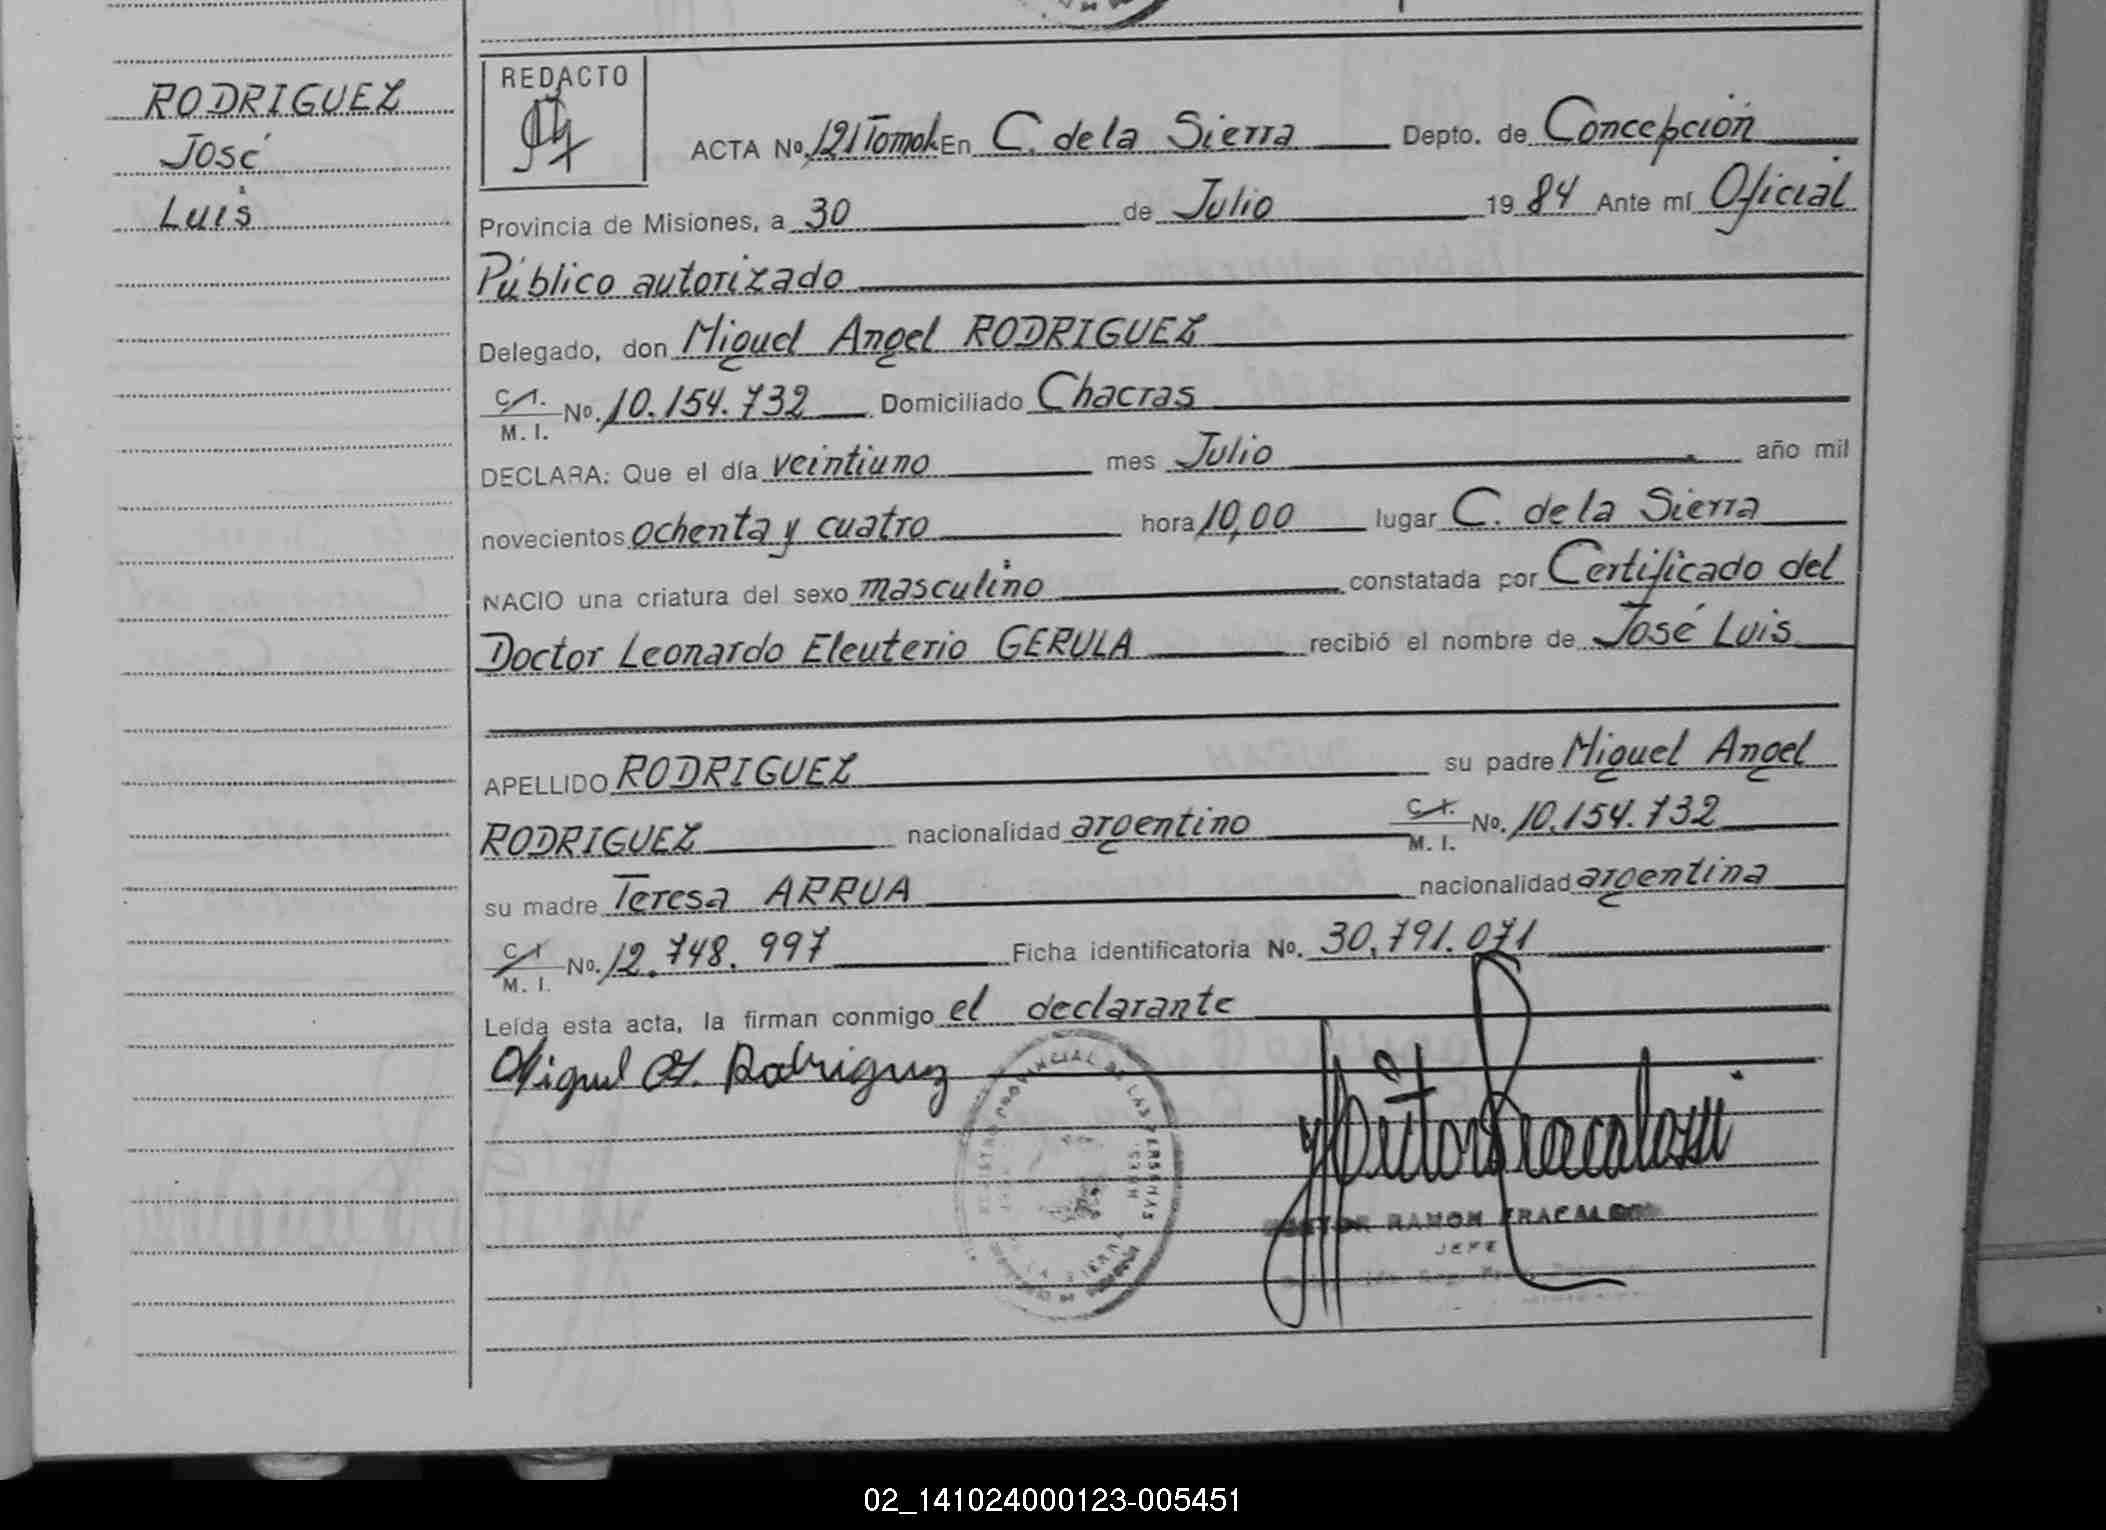 RODRIGUEZ
José
Luis
REDACTO
ACTA No. 121 Tomo En C. de la Sierra Depto. de Concepción
Provincia de Misiones, a 30 de Julio 1984 Ante mí Oficial
Público autorizado
Delegado, don Miguel Angel RODRIGUEZ
C.I.
M. I. No. 10.154.732 Domiciliado Chacras
DECLARA: Que el día veintiuno mes Julio año mil
novecientos ochenta y cuatro hora 10,00 lugar C. de la Sierra
NACIO una criatura del sexo masculino constatada por Certificado del
Doctor Leonardo Eleuterio GERULA recibió el nombre de José Luis
APELLIDO RODRIGUEZ su padre Miguel Angel
RODRIGUEZ nacionalidad argentino C.I. M. I. No. 10.154.732
su madre Teresa ARRUA nacionalidad argentina
C.I. M. I. No. 12.748.997 Ficha identificatoria No. 30.791.071
Leída esta acta, la firman conmigo el declarante
Miguel A. Rodriguez
REGISTRO PROVINCIAL DE LAS PERSONAS
RAMON FRACALOSSI
JEFE
02_141024000123-005451